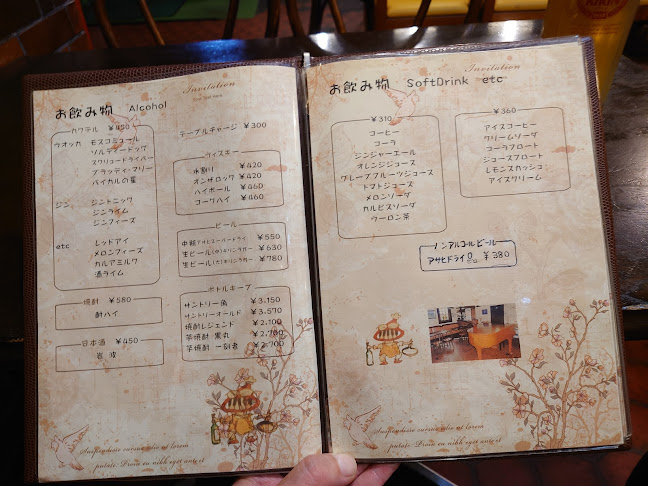 お飲み物 Alcohol
Invitation
カクテル ¥450
ウオッカ モスコミュール
ソルティードッグ
スクリュードライバー
ブラッディ・マリー
バイカルの星
ジン ジントニック
ジンライム
ジンフィーズ
etc レッドアイ
メロンフィーズ
カルアミルク
酒ライム
焼酎 ¥580
酎ハイ
日本酒 ¥450
岩波
テーブルチャージ ¥300
ウィスキー
水割り ¥420
オンザロック ¥420
ハイボール ¥460
コークハイ ¥460
ビール
中瓶アサヒスーパードライ ¥550
生ビール(中)キリンラガー ¥630
生ビール(大)キリンラガー ¥780
ボトルキープ
サントリー角 ¥3,150
サントリーオールド ¥3,570
焼酎レジェンド ¥2,100
芋焼酎・黒丸 ¥2,700
芋焼酎 一刻者 ¥2,700
Suspendisse cursus odio ut lorem
putate. Proin eu nibh eget ante et
お飲み物 SoftDrink etc
Invitation
¥310
コーヒー
コーラ
ジンジャーエール
オレンジジュース
グレープフルーツジュース
トマトジュース
メロンソーダ
カルピスソーダ
ウーロン茶
¥360
アイスコーヒー
クリームソーダ
コーラフロート
ジュースフロート
レモンスカッシュ
アイスクリーム
ノンアルコールビール
アサヒドライゼロ ¥380
Suspendisse cursus odio ut lorem
putate. Proin eu nibh eget ante et
KIRIN